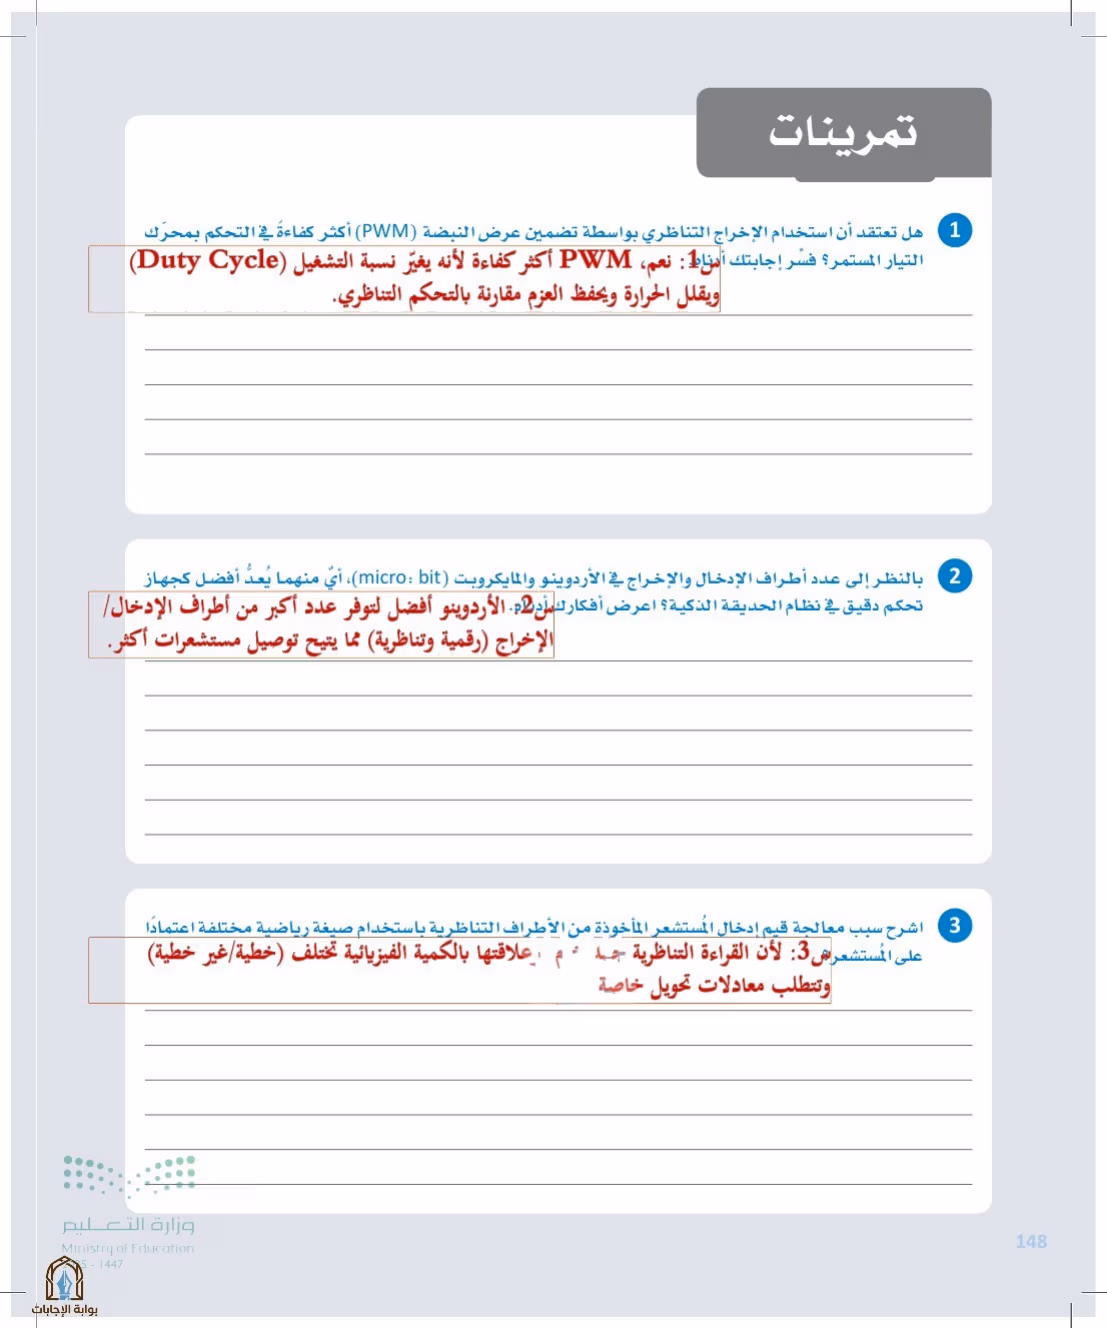 تمرينات
1
هل تعتقد أن استخدام الإخراج التناظري بواسطة تضمين عرض النبضة (PWM) أكثر كفاءةً في التحكم بمحرّك
التيار المستمر؟ فسّر إجابتك
س1: نعم، PWM أكثر كفاءة لأنه يغيّر نسبة التشغيل (Duty Cycle)
ويقلل الحرارة ويحفظ العزم مقارنة بالتحكم التناظري.
2
بالنظر إلى عدد أطراف الإدخال والإخراج في الأردوينو والمايكروبت (micro: bit)، أيٌّ منهما يُعدُّ أفضل كجهاز
تحكم دقيق في نظام الحديقة الذكية؟ اعرض أفكارك
س2. الأردوينو أفضل لتوفر عدد أكبر من أطراف الإدخال/
الإخراج (رقمية وتناظرية) مما يتيح توصيل مستشعرات أكثر.
3
اشرح سبب معالجة قيم إدخال المُستشعر المأخوذة من الأطراف التناظرية باستخدام صيغة رياضية مختلفة اعتمادًا
على المُستشعر
س3: لأن القراءة التناظرية علاقتها بالكمية الفيزيائية تختلف (خطية/غير خطية)
وتتطلب معادلات تحويل خاصة
وزارة التعليم
Ministry of Education
- 1447
148
بوابة الإجابات